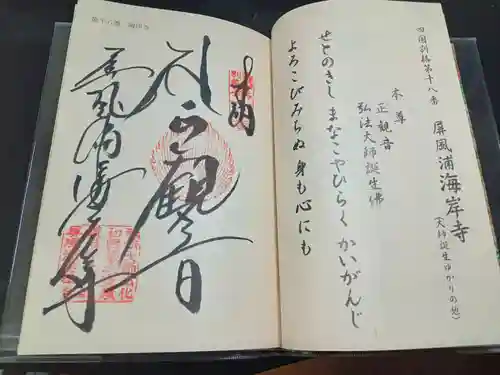 四国別格第十八番
屏風浦海岸寺
(大師誕生ゆかりの地)
本尊
正観音
弘法大師誕生佛
せとのきし まなこやひらく かいがんじ
よろこびみちぬ 身も心にも
第十八番 海岸寺
奉納
正観音
屏風浦海岸寺